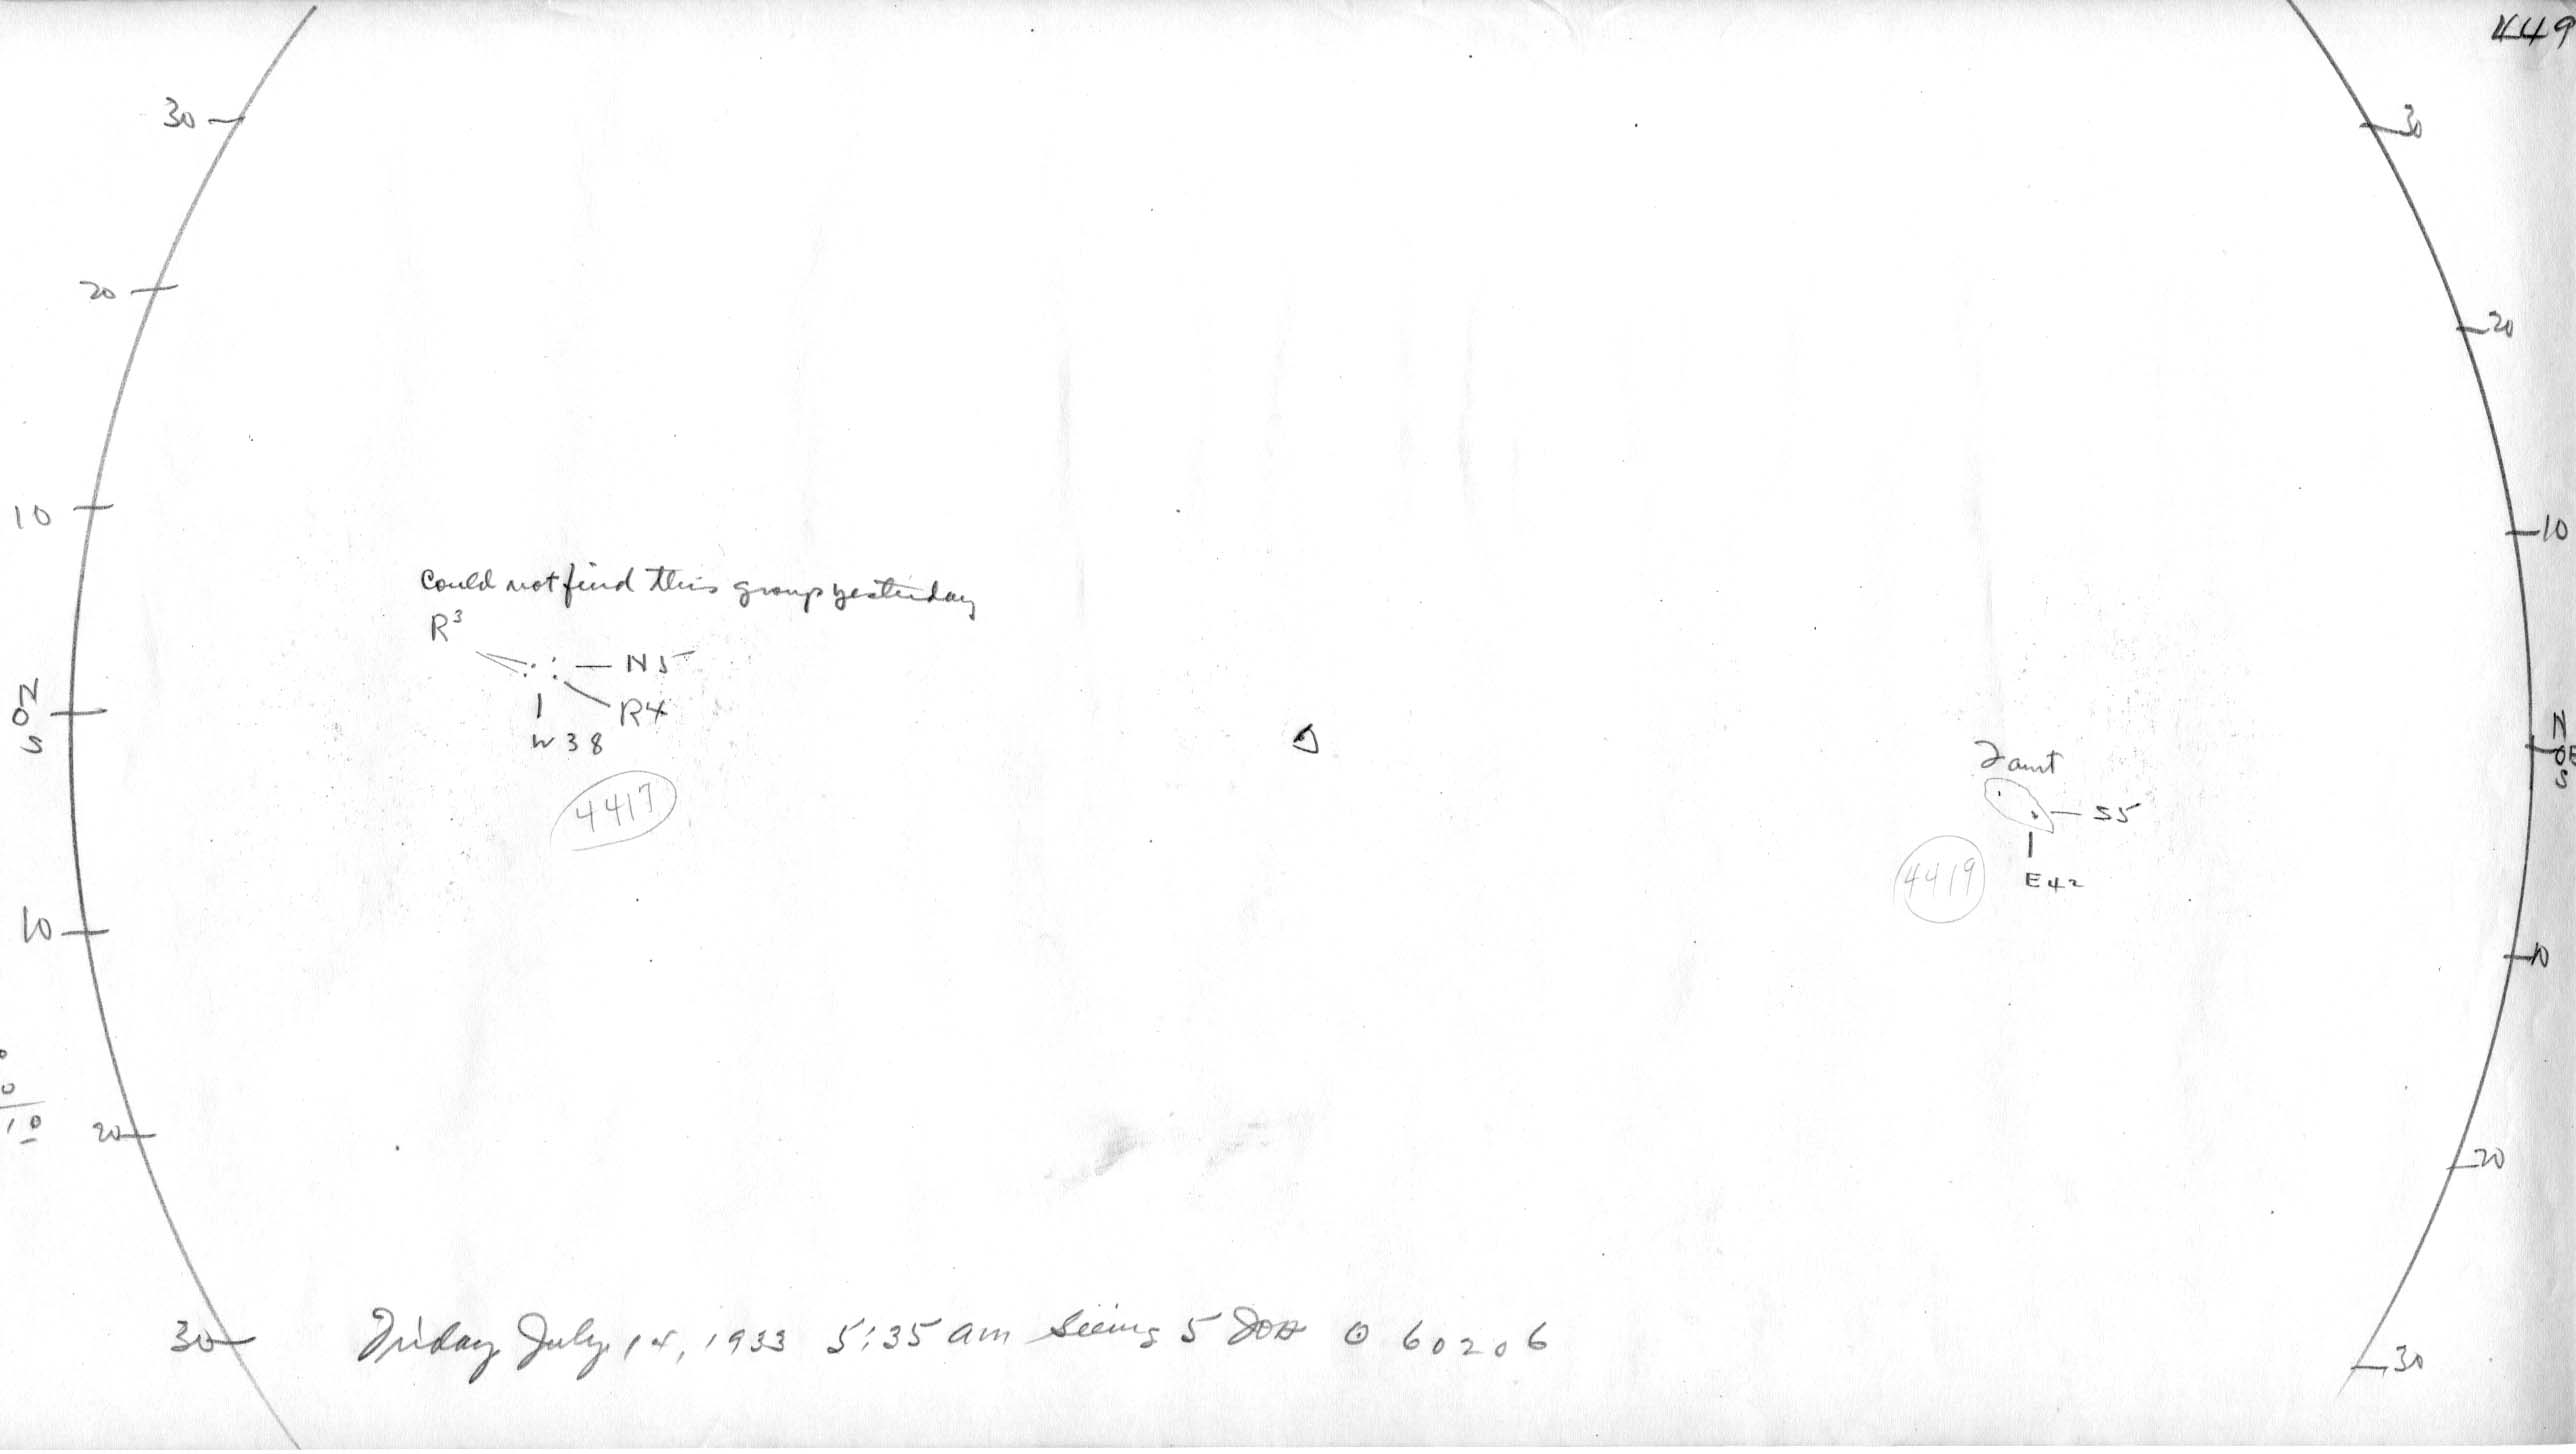 449
30
30
20
20
10
10
Could not find this group yesterday
R3
N5
R4
W38
N
0
S
N
0
E
S
4417
Faint
S5
E42
4419
10
10
10
20
20
30
30
Friday July 14, 1933 5:35 am Seeing 5 ⊙ 60206